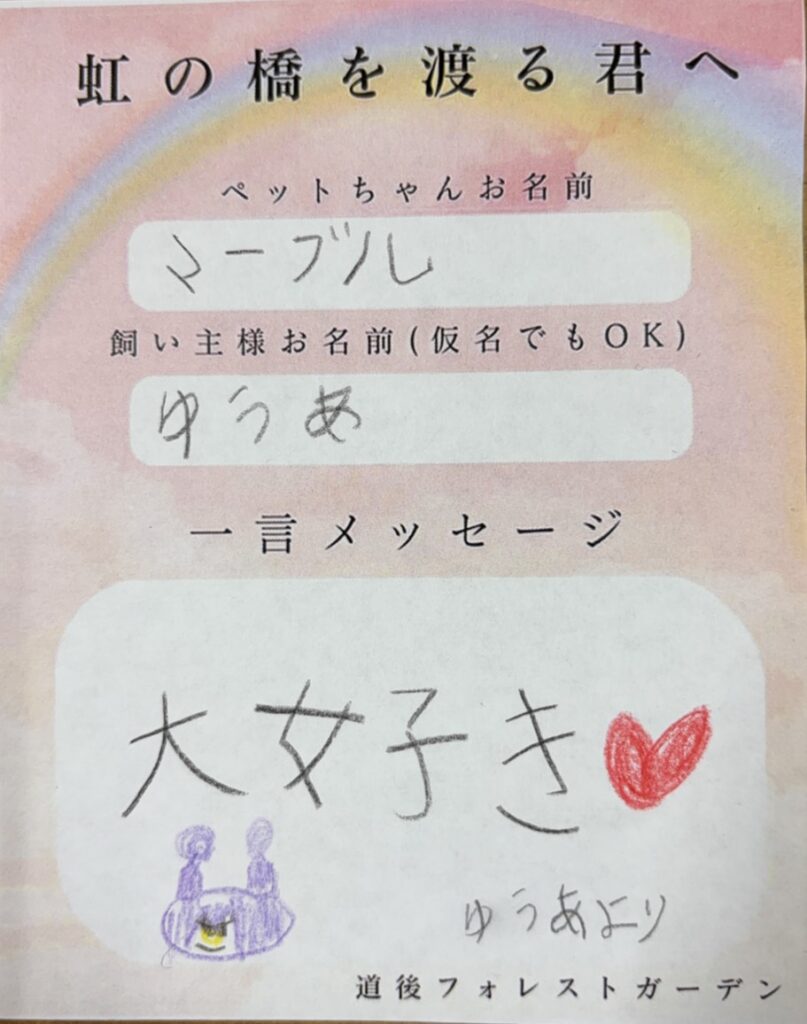 虹の橋を渡る君へ
ペットちゃんお名前
マーブル
飼い主様お名前(仮名でもOK)
ゆうあ
一言メッセージ
大好き
ゆうあより
道後フォレストガーデン